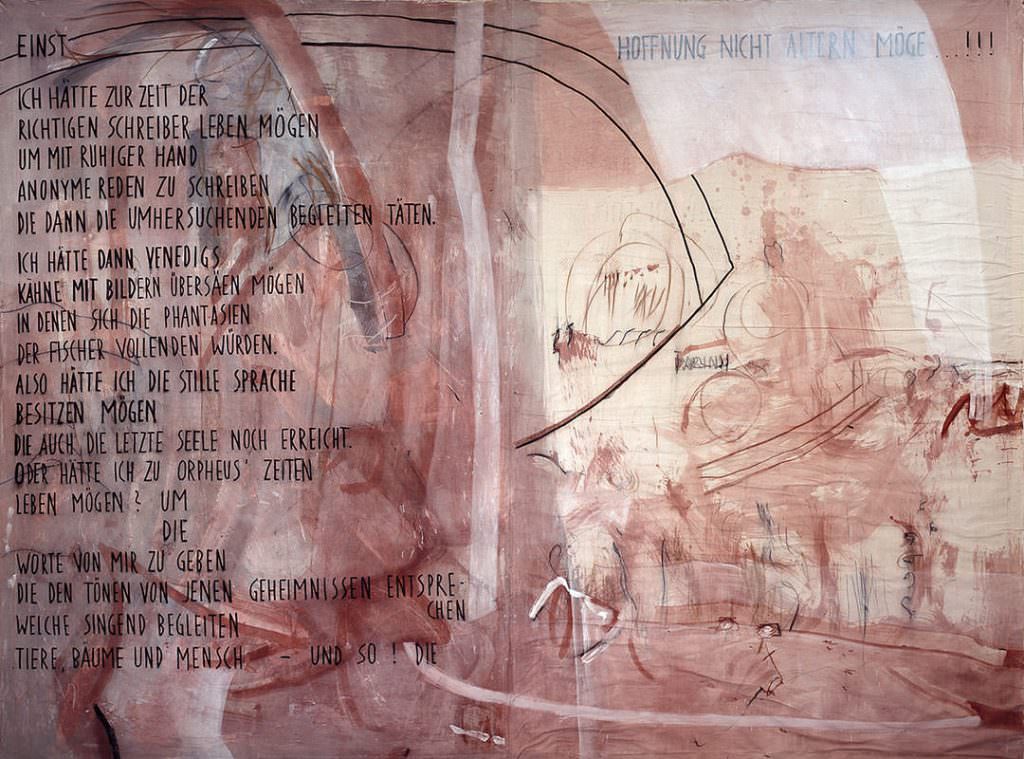 EINST
ICH HÄTTE ZUR ZEIT DER
RICHTIGEN SCHREIBER LEBEN MÖGEN
UM MIT RUHIGER HAND
ANONYME REDEN ZU SCHREIBEN
DIE DANN DIE UMHERSUCHENDEN BEGLEITEN TÄTEN.
ICH HÄTTE DANN VENEDIGS
KÄHNE MIT BILDERN ÜBERSÄEN MÖGEN
IN DENEN SICH DIE PHANTASIEN
DER FISCHER VOLLENDEN WÜRDEN.
ALSO HÄTTE ICH DIE STILLE SPRACHE
BESITZEN MÖGEN
DIE AUCH DIE LETZTE SEELE NOCH ERREICHT.
ODER HÄTTE ICH ZU ORPHEUS' ZEITEN
LEBEN MÖGEN? UM
DIE
WORTE VON MIR ZU GEBEN
DIE DEN TÖNEN VON JENEN GEHEIMNISSEN ENTSPRE-
CHEN
WELCHE SINGEND BEGLEITEN
TIERE, BÄUME UND MENSCH. - UND SO! DIE
HOFFNUNG NICHT ALTERN MÖGE ...!!!